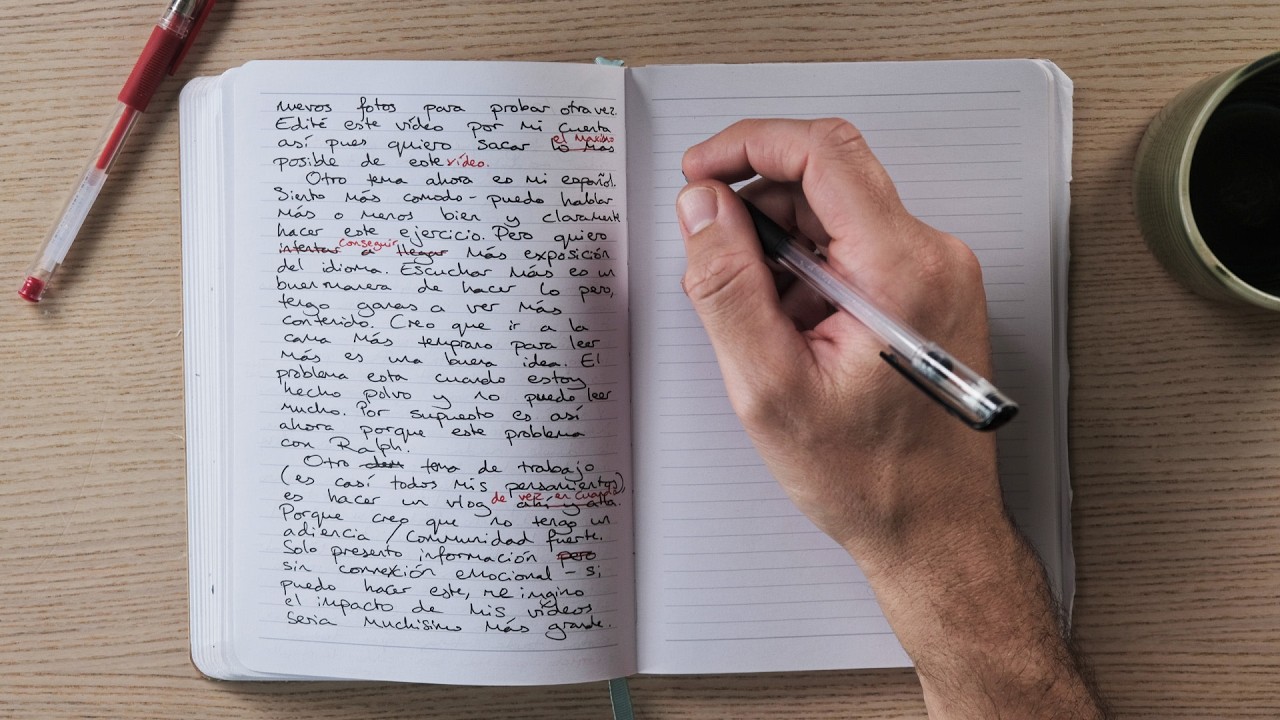 nuevos fotos para probar otra vez.
Edité este vídeo por mi cuenta
así pues quiero sacar lo más
el máximo
posible de este vídeo.
Otro tema ahora es mi español.
Siento más comodo - puedo hablar
más o menos bien y claramente
hacer este ejercicio. Pero quiero
conseguir
intentar a llegar más exposición
del idioma. Escuchar más es un
buen manera de hacer lo pero,
tengo ganas a ver más
contenido. Creo que ir a la
cama más temprano para leer
más es una buena idea. El
problema esta cuando estoy
hecho polvo y no puedo leer
mucho. Por supuesto es así
ahora porque este problema
con Ralph.
Otro tema de trabajo
(es casí todos mis pensamientos)
de vez en cuando
es hacer un vlog ahí y alla.
Porque creo que no tengo un
adiencia / comunidad fuerte.
Solo presento información pero
sin connexión emocional - si
puedo hacer este, me imgino
el impacto de mis vídeos
seria muchisimo más grande.